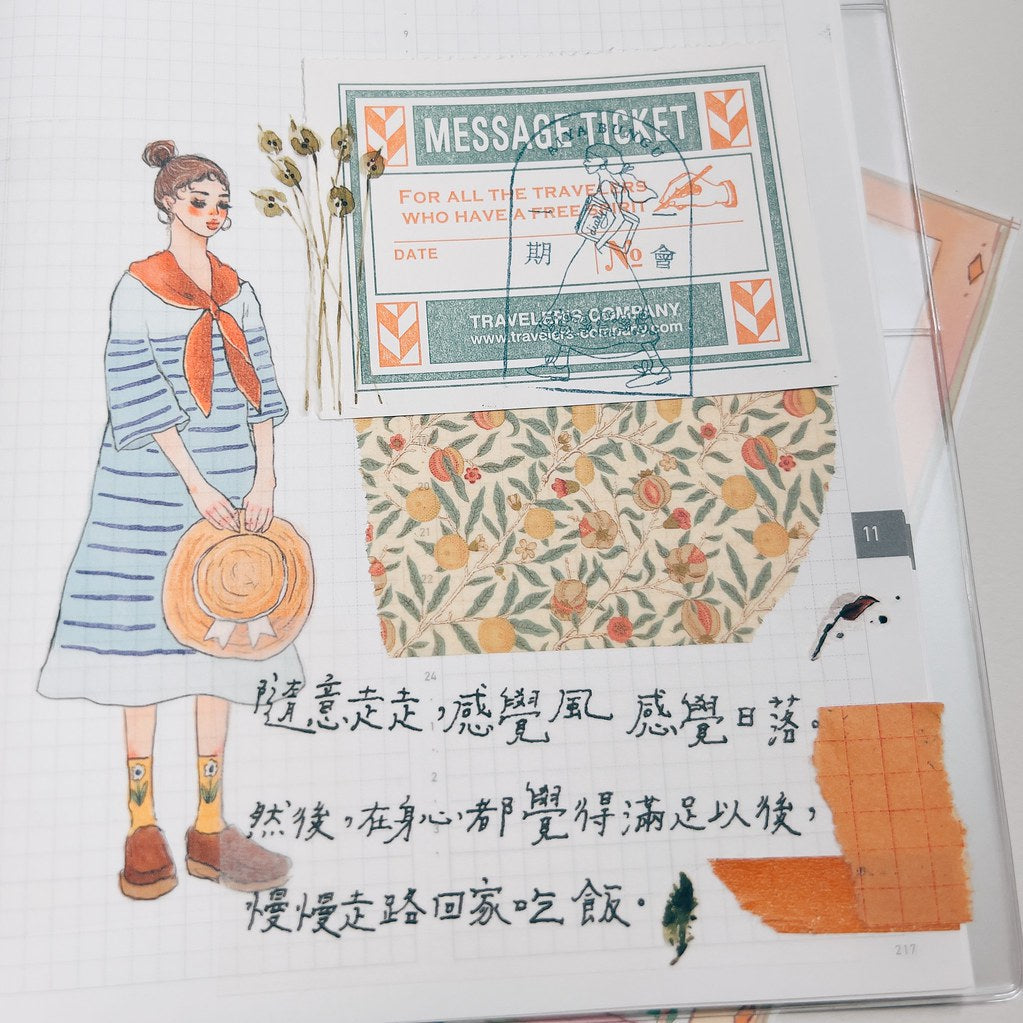 9
MESSAGE TICKET
ANA BUNGU
FOR ALL THE TRAVELERS
WHO HAVE A FREE SPIRIT
DATE
No
期
會
diary
TRAVELER'S COMPANY
www.travelers-company.com
20
21
22
11
24
隨意走走,感覺風 感覺日落。
2
然後,在身心都覺得滿足以後,
3
慢慢走路回家吃飯.
217